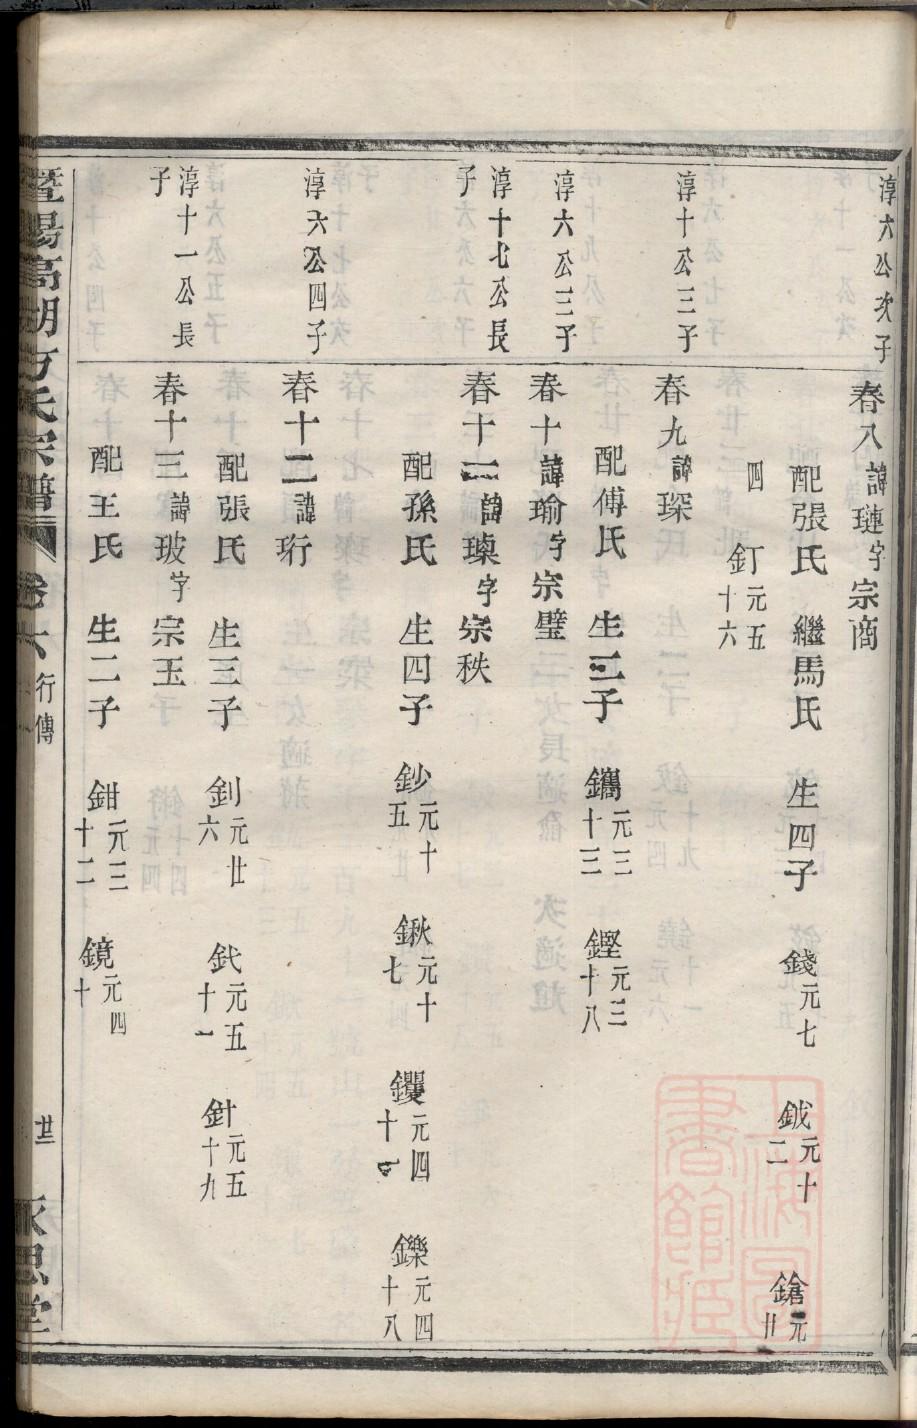 淳六公次子
春八諱璉字宗商
配張氏 繼馬氏 生四子 錢元七 鉞元十二 鎗元廿
四 釘元五十六
淳十公三子
春九諱琛
配傅氏 生三子 鑴元三十三 鏗元三十八
淳六公三子
春十諱瑜字宗璧
淳十七公長子
春十一諱璪字宗秩
配孫氏 生四子 鈔元十五 鍬元十七 钁元四十一 鑠元四十八
淳六公四子
春十二諱珩
配張氏 生三子 釗元廿六 釴元五十一 針元五十九
淳十一公長子
春十三諱玻字宗玉
配王氏 生二子 鉗元三十二 鏡元四十
暨陽高湖方氏宗譜 卷六 行傳 廿三 永思堂